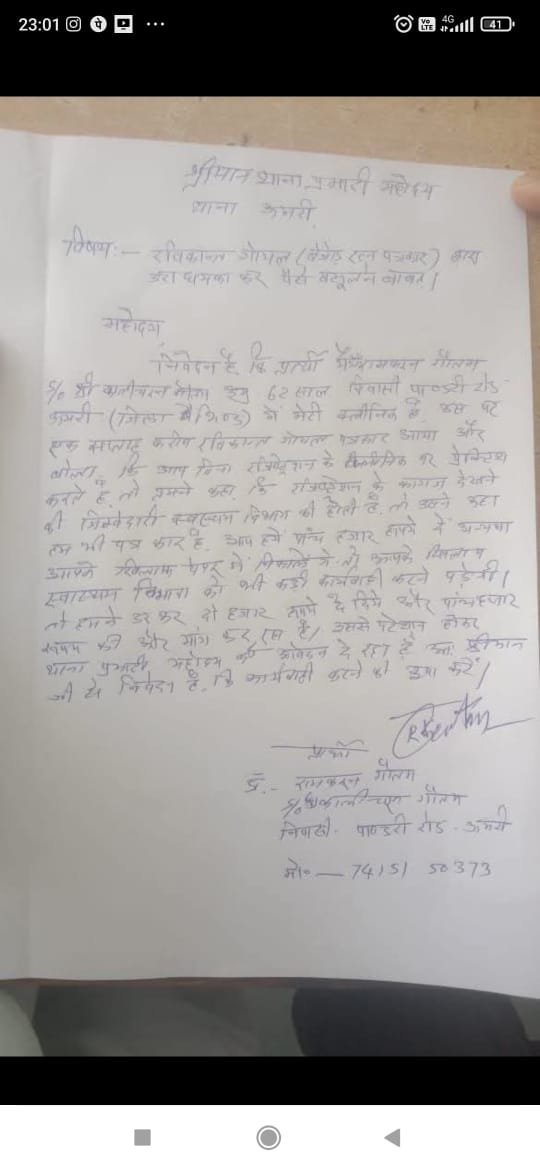 23:01
4G
41
श्रीमान थाना प्रभारी महोदय
थाना ऊमरी
विषय:- रविकान्त गोयल (बेजोड रत्न पत्रकार) द्वारा
डरा धमका कर पैसे बसूलने बाबत।
महोदय,
निवेदन है कि प्रार्थी रामकरन गौतम
S/o श्री कालीचरन उम्र 62 साल निवासी पाण्डरी रोड
ऊमरी (जिला भिण्ड) में मेरी क्लीनिक है. उस पर
एक सप्ताह करीब रविकान्त गोयल पत्रकार आया और
बोला कि आप बिना रजिस्ट्रेशन के क्लीनिक पर प्रेक्टिश
करते है. तो हमने कहा कि रजिस्ट्रेशन के कागज देखने
की जिम्मेदारी स्वास्थ्य विभाग की होती है. तो उसने कहा
हम भी पत्रकार है. आप हमे पांच हजार रूपये दे अन्यथा
आपके खिलाफ पेपर में निकालेंगे तो आपके खिलाफ
स्वास्थ्य विभाग को भी कडी कार्यवाही करने पडेगी।
तो हमने डर कर दो हजार रूपये दे दिये और पांच हजार
रूपये की और मांग कर रहा है। उससे परेशान होकर
थाना प्रभारी महोदय को आवेदन दे रहा है अतः श्रीमान
जी से निवेदन है. कि कार्यवाही करने की कृपा करें।
प्रार्थी
डॉ.- रामकरन गौतम
S/o श्री कालीचरन गौतम
निवासी- पाण्डरी रोड ऊमरी
मो०- 74151 50373